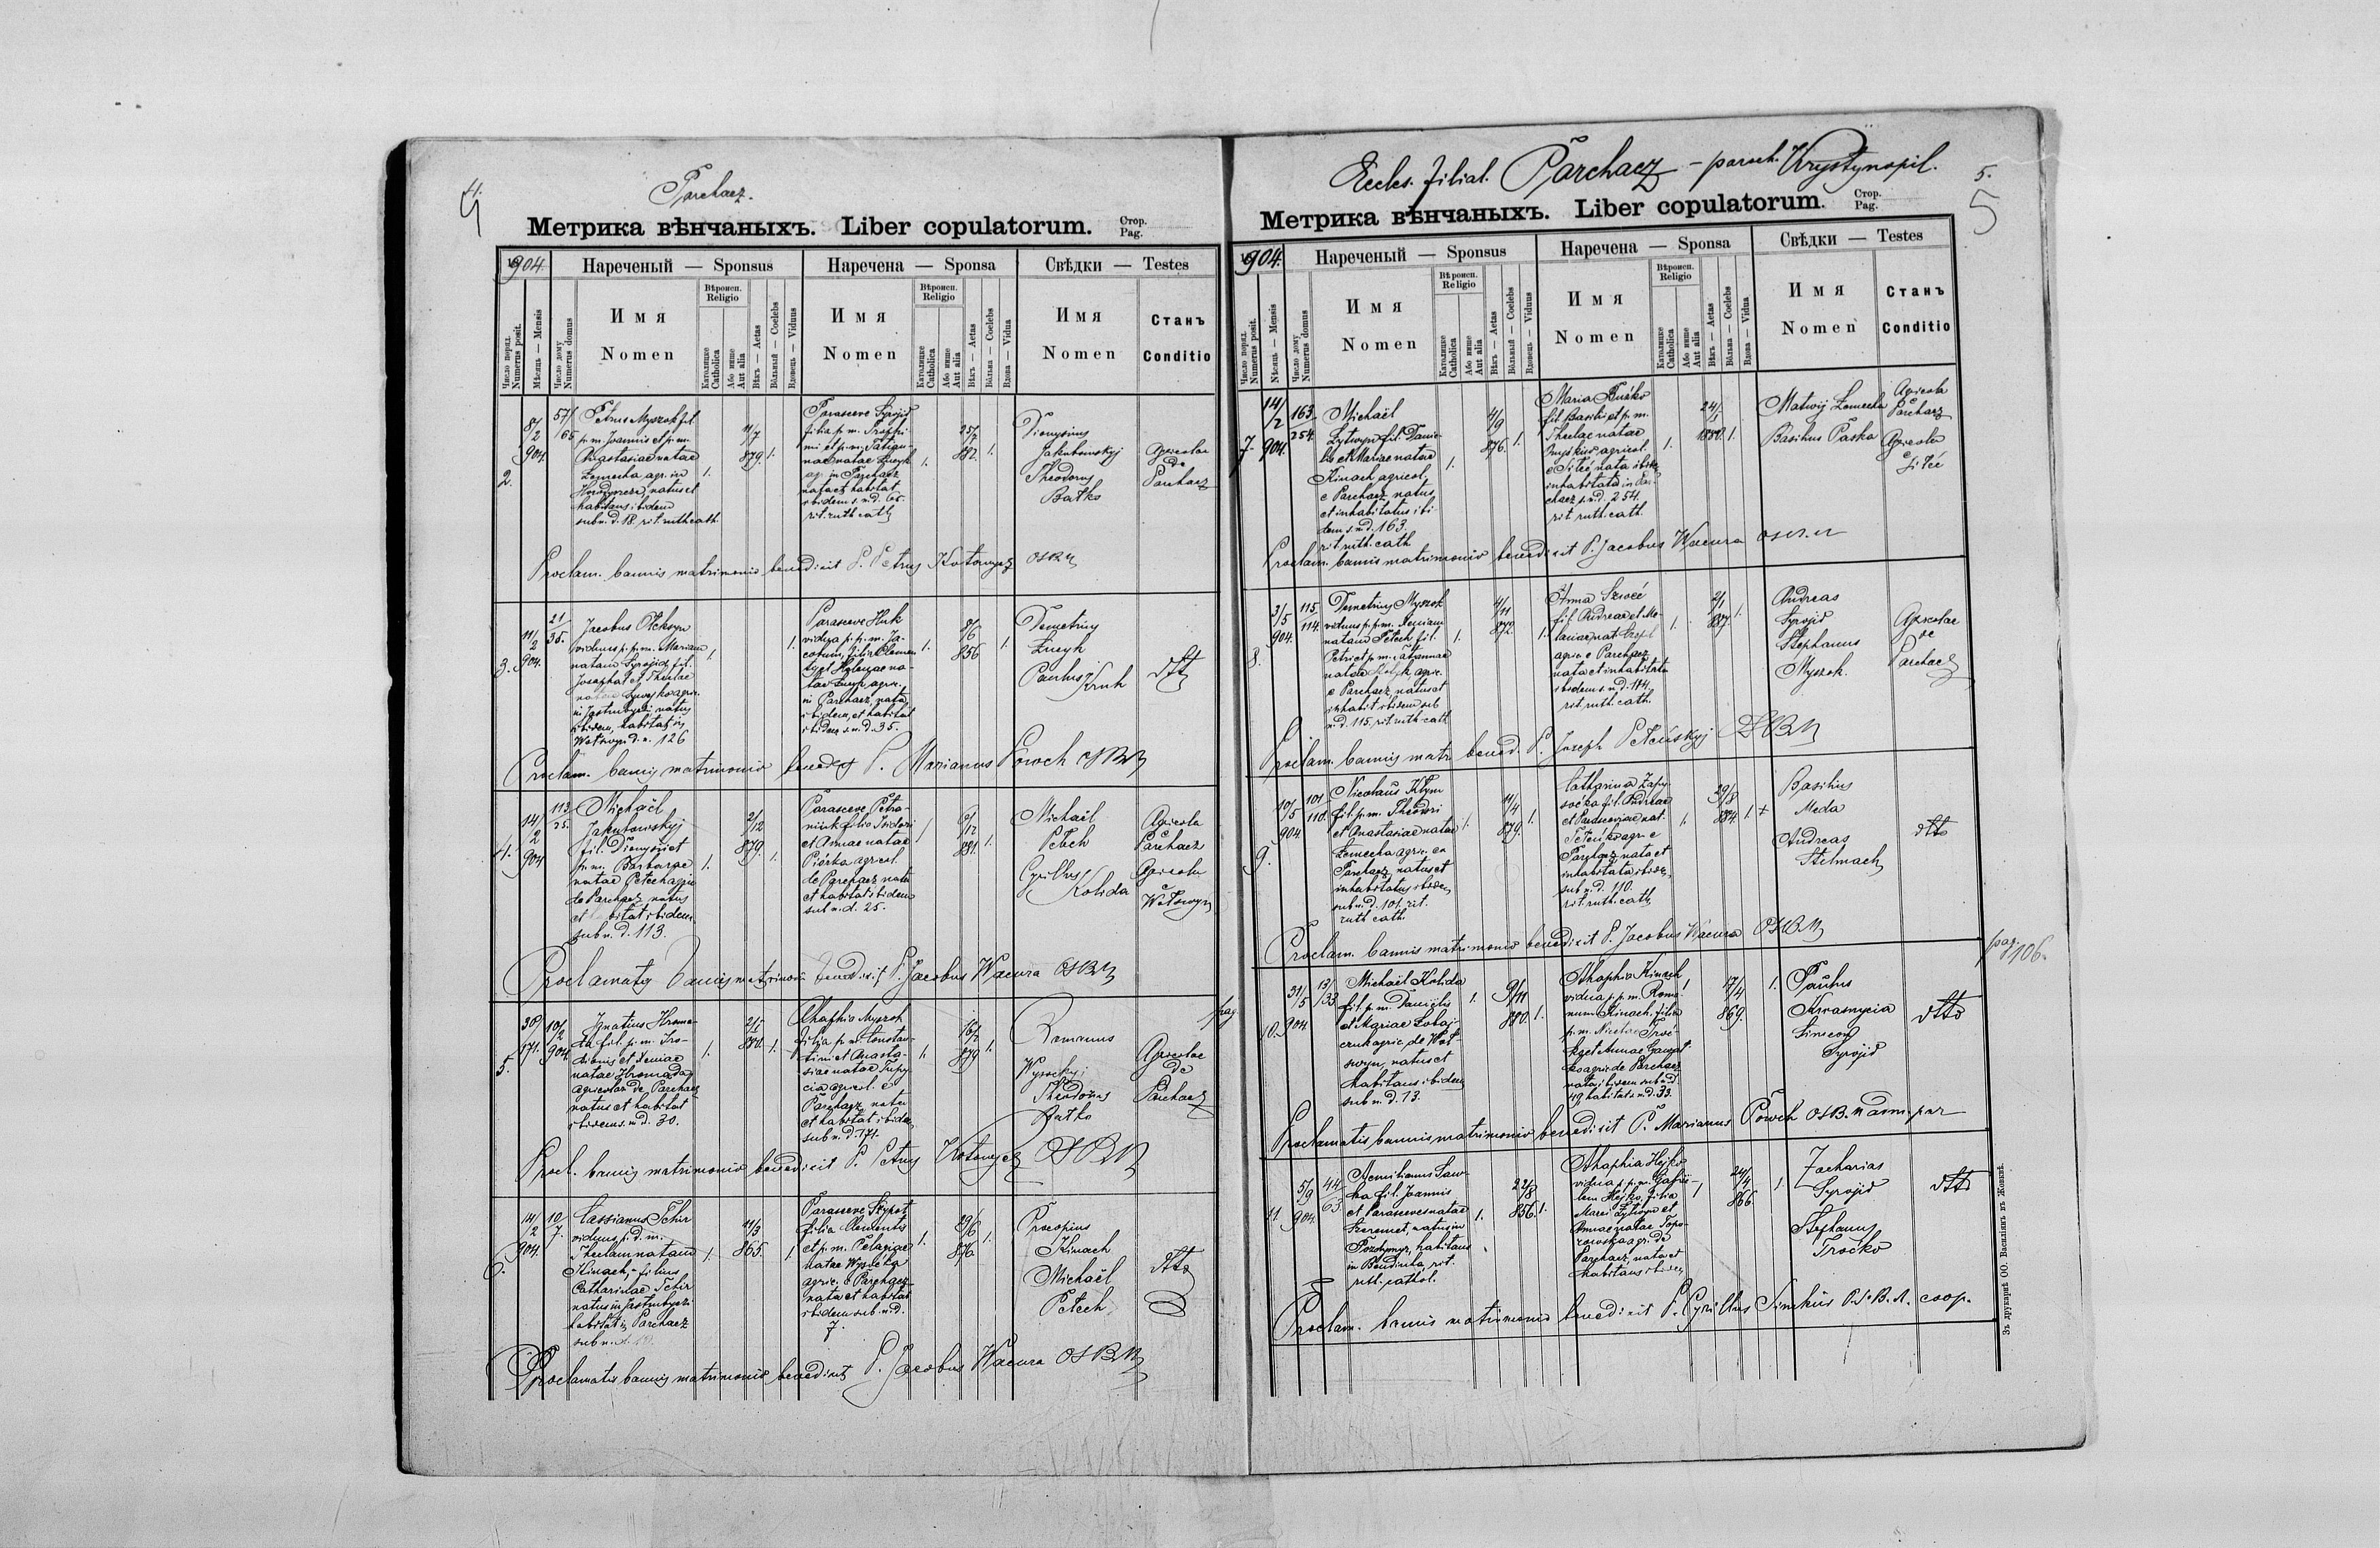 4.
Parchacz.
Метрика вѣнчаныхъ. Liber copulatorum. Стор. Pag.
1904
Нареченый — Sponsus
Наречена — Sponsa
Свѣдки — Testes
Число поряд. Numerus posit.
Мѣсяць — Mensis
Число дому Numerus domus
Имя Nomen
Вѣроисп. Religio
Католицке Catholica
Або инше Aut alia
Вѣкъ — Aetas
Вôльный — Coelebs
Вдовець — Viduus
Имя Nomen
Вѣроисп. Religio
Католицке Catholica
Або инше Aut alia
Вѣкъ — Aetas
Вôльна — Coelebs
Вдова — Vidua
Имя Nomen
Станъ Conditio
2.
8/2 904
57/65
Petrus Myszok fil.
p. m. Joannis et p. m.
Anastasiae natae
Zomecha agr. in
natus et
habitans ibidem
sub n. d. 18. rit. ruth. cath.
1.
11/7 879.
1.
Parasceve Syrojid
filia p. m. Trophi-
mi et p. m. Tatian-
nae natae Zucyk
agr. in Parchacz
nata et habitat
ibidem s. n. d. 65.
rit. ruth. cath.
1.
25/7 882.
1.
Dionysius
Jakubowskyj
Theodorus
Batko
Agricolae
de
Parchacz
Proclam. bannis matrimonio benedixit P. Petrus Kotowycz OSBM
3.
11/2 904.
21/35.
Jacobus Oleksyn
viduus p. p. m. Mariam
natam Syrojid, fil.
Josaphat et Theclae
agr.
in Jastrubyczi natus
ibidem, habitat in
Wolswyn d. n. 126
1.
1.
Parasceve Huk
vidua p. p. m. Ja-
cobum, filia Clemen-
tis et Helenae na-
tae Zucyk agric.
in Parchacz, nata
ibidem, et habitat
ibidem s. n. d. 35.
1.
8/6 856
1.
Demetrius
Zucyk
Paulus Kruk
dtto
Proclam. bannis matrimonio bened. P. Marianus Powch OSBM
4.
14/2 904
113/25.
Michaël
Jakubowskyj
fil. Dionysii et
p. m. Barbarae
natae Petech agric.
de Parchacz natus
et habitat ibidem
sub n. d. 113.
1.
2/12 879.
1.
Parasceve Petro-
niuk filia Isidori
et Annae natae
Piórka agricol.
de Parchacz nata
et habitat ibidem
sub n. d. 25.
1
6/12 881.
1.
Michaël
Petech
Cyrillus
Kolida
Agricola
Parchacz
Agricola
e
Wolswyn
Proclamatis bannis matrimonio benedixit P. Jacobus Wacura OSBM
5.
30/171.
10/2 904
Ignatius Hroma-
da fil. p. m. Iro-
dionis et Xeniae
natae Hromada
agricolar. de Parchacz
natus et habitat
ibidem s. n. d. 30.
1.
2/1 880.
1.
Ahaphia Myszok
filia p. m. Constan-
tini et Anasta-
siae natae
agricol. e
Parchacz nata
et habitat ibidem
sub n. d. 171.
1.
16/2 879
1.
Romanus
Wysockyj
Theodorus
Batko
Agricolae
de
Parchacz
pag
Procl. bannis matrimonio benedixit P. Petrus Kotowycz OSBM
6.
14/2 904
10/7.
Cassianus Tchir
viduus p. d. m.
Theclam natam
Kinach, filius
Catharinae Tchir
natus in Jastrubyczi
habitat in Parchacz
sub n. d. 10.
1.
11/3 865.
1.
Parasceve Skypot
filia Clementis
et p. m. Pelagiae
natae Wysocka
agric. e Parchacz
nata et habitat
ibidem sub. n. d.
7
1.
29/6 876
1.
Procopius
Kinach
Michaël
Petech
dtto
Proclamatis bannis matrimonio benedixit P. Jacobus Wacura OSBM
Eccles. filial. Parchacz – paroch. Krystynopil.
5.
5
Метрика вѣнчаныхъ. Liber copulatorum. Стор. Pag.
1904.
Нареченый — Sponsus
Наречена — Sponsa
Свѣдки — Testes
Число поряд. Numerus posit.
Мѣсяць — Mensis
Число дому Numerus domus
Имя Nomen
Вѣроисп. Religio
Католицке Catholica
Або инше Aut alia
Вѣкъ — Aetas
Вôльный — Coelebs
Вдовець — Viduus
Имя Nomen
Вѣроисп. Religio
Католицке Catholica
Або инше Aut alia
Вѣкъ — Aetas
Вôльна — Coelebs
Вдова — Vidua
Имя Nomen
Станъ Conditio
7.
14/2 904.
163/254.
Michaël
Lytwyn fil. Danie-
lis et Mariae natae
Kinach agricol.
e Parchacz, natus
et inhabitatus ibi
dem s. n. d. 163.
rit. ruth. cath.
1.
4/9 876.
1.
Maria
fil. Basilii et p. m.
Theclae natae
agricol.
e Silec, nata ibid.
inhabitata in Par-
chacz s. n. d. 254.
rit. ruth. cath.
1.
24/1 1880.
1.
Matwij Zomecha
Basilius Paska
Agricola
Parchacz
Agricola
e
Silec
Proclam. bannis matrimonio benedixit P. Jacobus Wacura OSBM
8.
3/5 904.
115/114.
Demetrius Myszok
viduus p. p. m. Xeniam
natam Petech fil.
Petri et p. m. Tatiannae
natae agric.
e Parchacz, natus et
inhabit. ibidem sub
n. d. 115. rit. ruth. cath
1.
4/11 872.
1.
Anna Szweć
fil. Andreae et Me-
laniae nat.
agric. e Parchacz
nata et inhabitata
ibidem s. n. d. 114.
rit. ruth. cath.
1.
2/1 887.
1.
Andreas
Syrojid
Stephanus
Myszok.
Agricolae
de
Parchacz
Proclam. bannis matr. bened. P. Joseph OSBM
9.
10/5 904
101/110.
Nicolaus Klym
fil. p. m. Theodori
et Anastasiae natae
Zomecha agric. ex
Parchacz, natus et
inhabitatus ibidem
sub n. d. 101. rit.
ruth. cath.
1.
11/4 879.
1.
Catharina
fil. Andreae
et Parascevae nat.
agr. e
Parchacz nata et
inhabitata ibidem
sub n. d. 110.
rit. ruth. cath.
1.
29/8 884.
1.
Basilius
Meda
Andreas
Stelmach
dtto
Proclam. bannis matrimonio benedixit P. Jacobus Wacura OSBM
pag. 106.
10.
31/5 904
13/33
Michaël Kolida
fil. p. m. Danielis
et Mariae
agric. de Wol-
swyn, natus et
habitans ibidem
sub n. d. 13.
1.
9/11 880.
1.
Ahaphia Kinach
vidua p. p. m. Roma-
num Kinach, filia
p. m. Nicetae
et Annae
agric. de Parchacz
nata ibidem sub n. d.
49 habitat s. n. d. 33.
1
17/4 869.
1.
Paulus
Krasnycia
Simeon
Syrojid
dtto
Proclamatis bannis matrimonio benedixit P. Marianus Powch OSBM adm. par
11
5/9 904.
44/63.
Aemilianus Saw-
ka fil. Joannis
et Parascevae natae
Szeremet, natus in
habitans
in rit.
ruth. cathol.
1.
22/8 856.
1.
Ahaphia Hejko
vidua p. p. m. Gabrie-
lem Hejko, filia
Marci Lytwyn et
Annae natae Topo-
rowska agr. de
Parchacz, nata et
habitans ibidem
1
24/4 866
1.
Zacharias
Syrojid
Stephanus
Troćko
dtto
Proclam. bannis matrimonio benedixit P. Cyrillus coop.
Зъ друкарнѣ ОО. Василіянъ въ Жовквѣ.